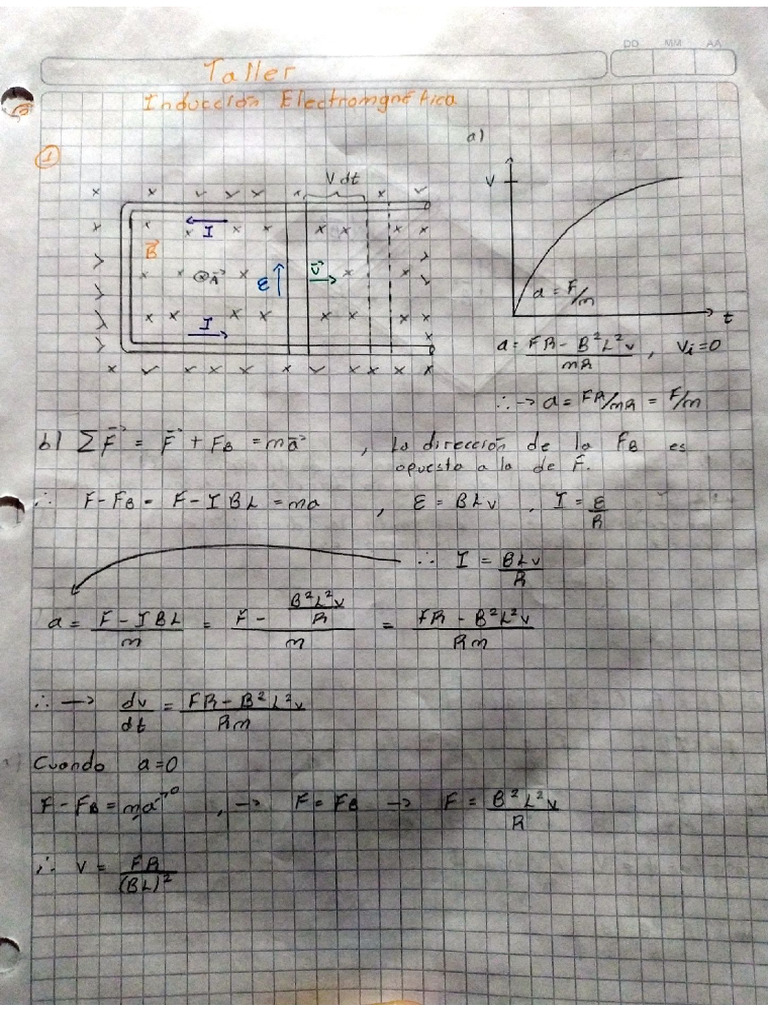 DD MM AA
Taller
Inducción Electromgnética
1
a)
V dt
I
B⃗
A⃗
ε
V⃗
I
V
a = F/m
t
a = FR - B²L²v / mR , Vi=0
∴ → a = FR/mR = F/m
b) ΣF⃗ = F⃗ + FB = ma⃗ , La dirección de la FB es
opuesta a la de F.
∴ F-FB = F-IBL = ma , ε = BLv , I = ε/R
∴ I = BLv/R
a = F-IBL/m = F - B²L²v/R / m = FR - B²L²v / Rm
∴ → dv/dt = FR-B²L²v / Rm
Cuando a=0
F-FB = ma→0 , → F=FB → F = B²L²v/R
∴ v = FR/(BL)²